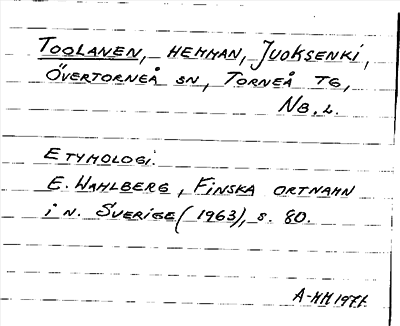 TOOLANEN, HEMMAN, JUOKSENKI,
ÖVERTORNEÅ SN, TORNEÅ TG,
NB, L.
ETYMOLOGI.
E. WAHLBERG, FINSKA ORTNAMN
i N. SVERIGE (1963), S. 80.
A-MM 1971.